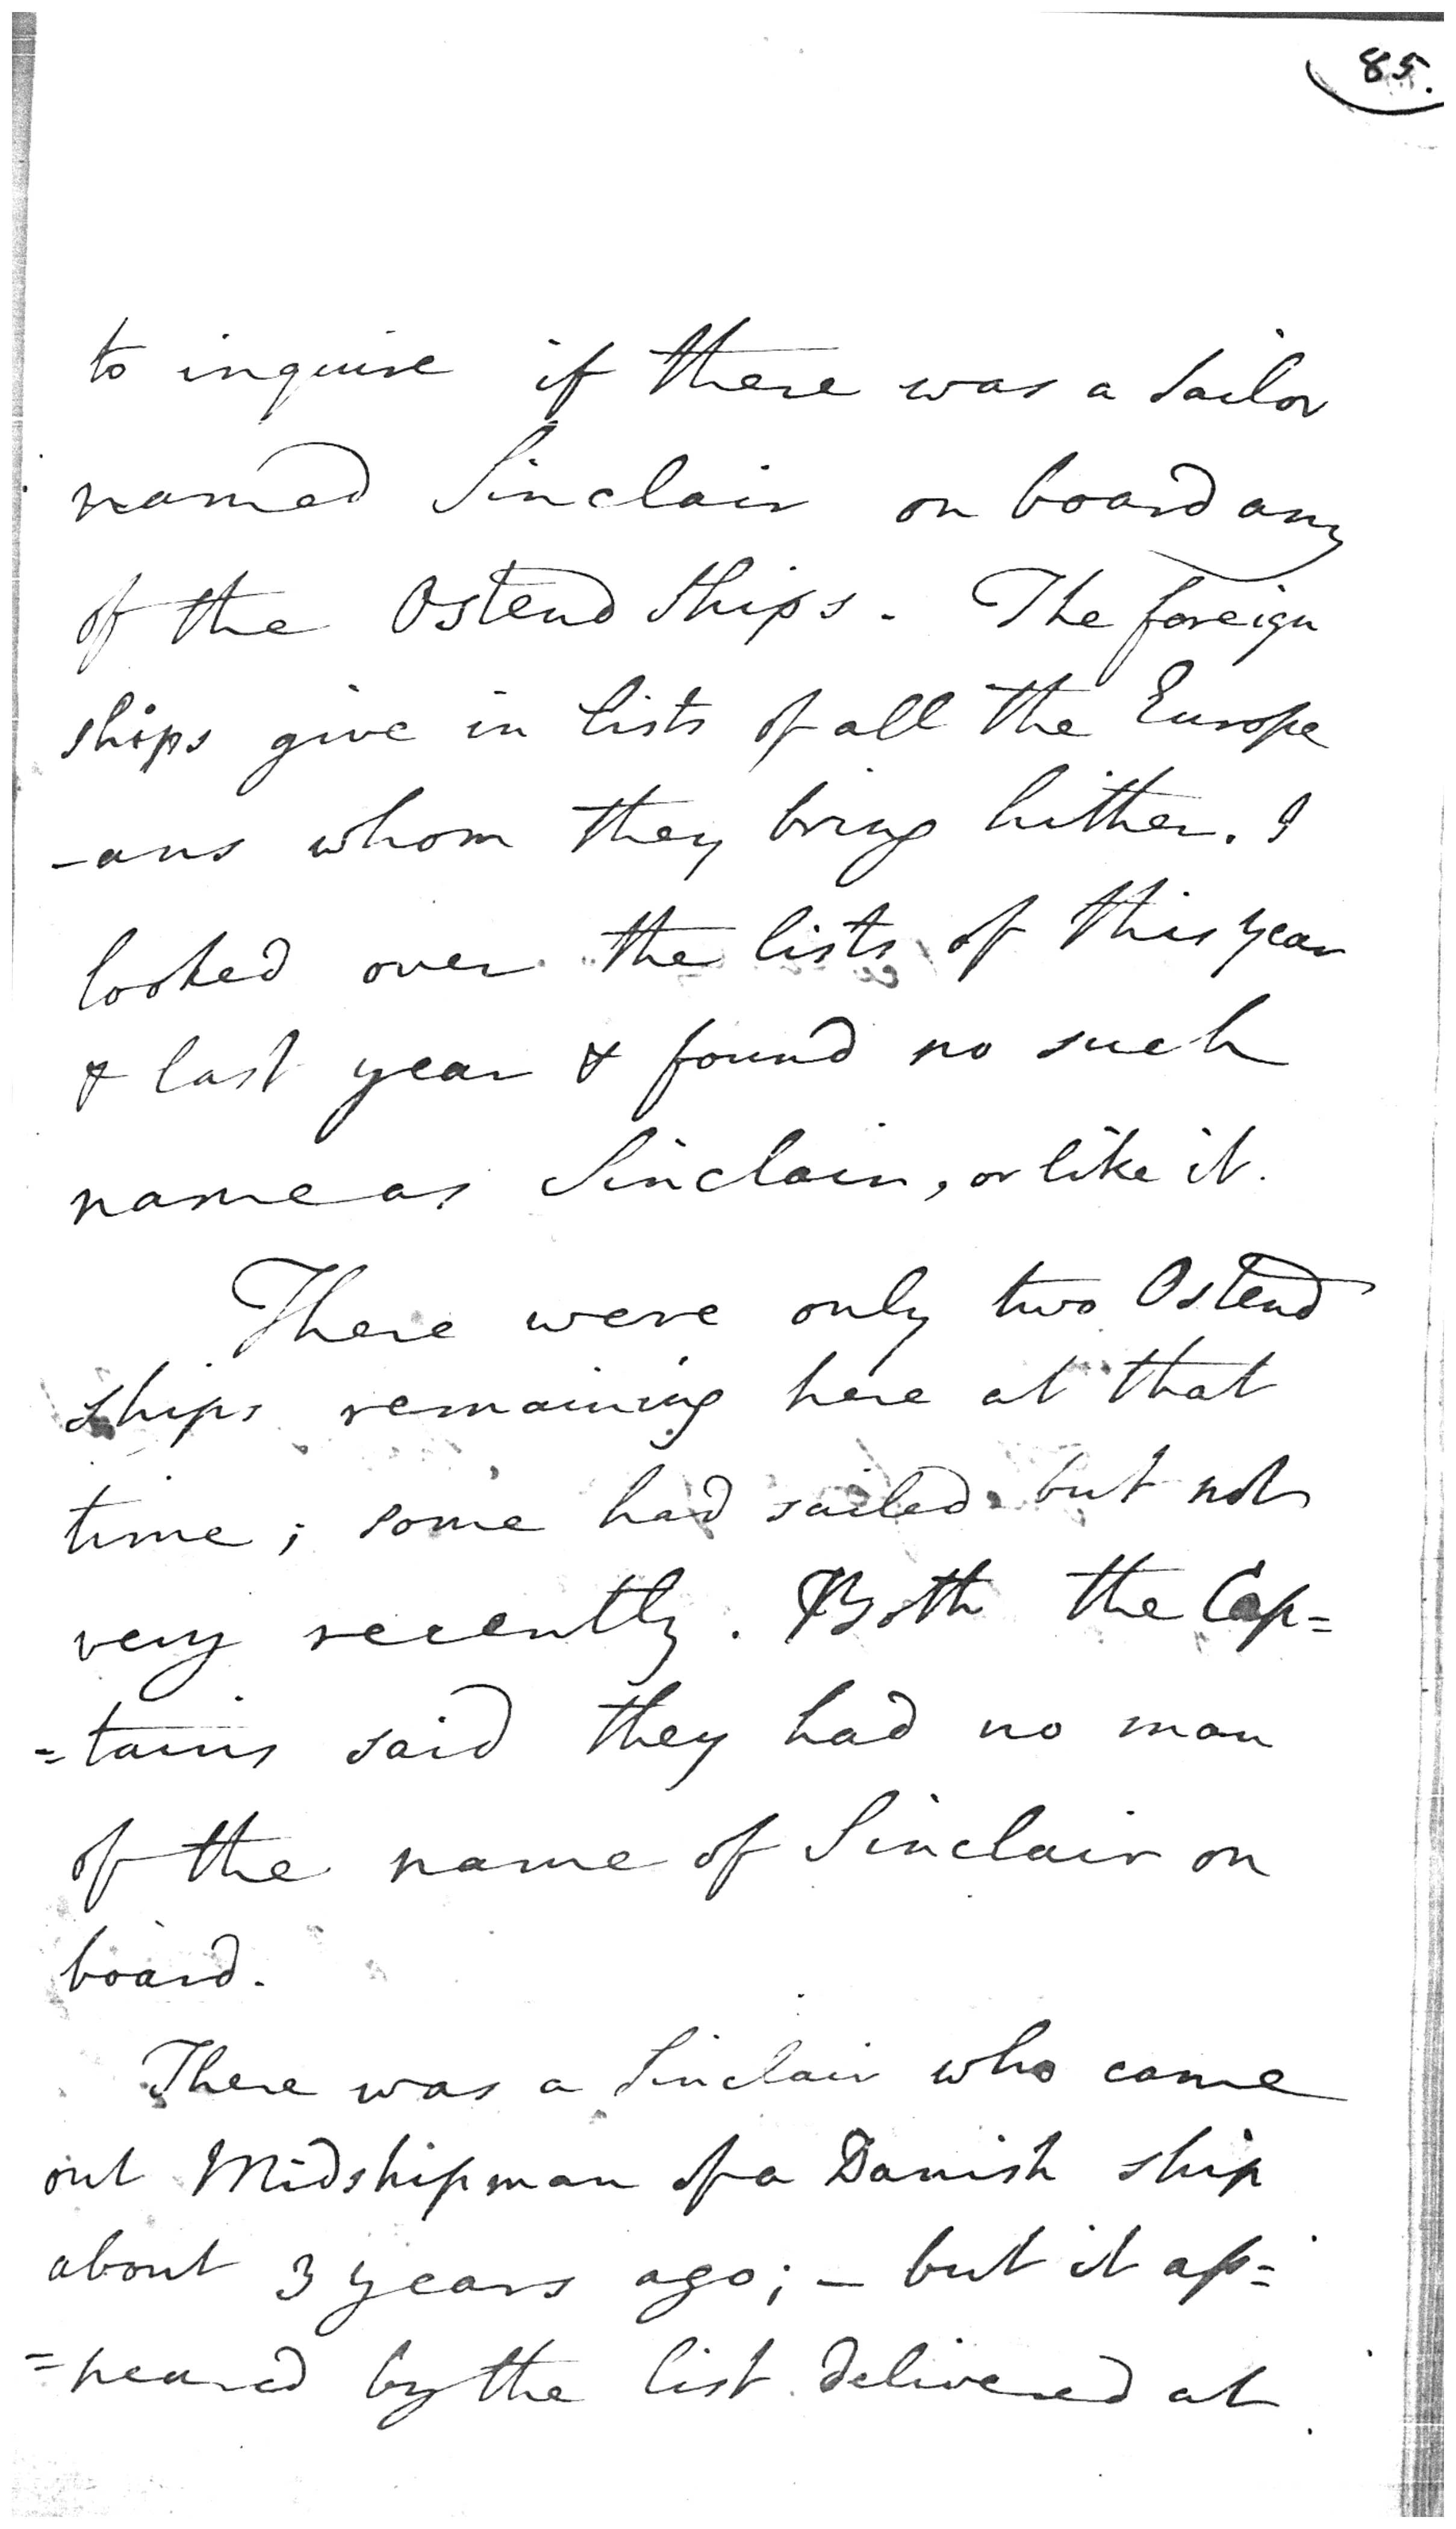 85.
to inquire if there was a Sailor
named Sinclair on board any
of the Ostend Ships. The foreign
ships give in lists of all the Europe
-ans whom they bring hither. I
looked over the lists of this year
& last year & found no such
name as Sinclair, or like it.
There were only two Ostend
Ships remaining here at that
time; some had sailed but not
very recently. Both the Cap=
=tains said they had no man
of the name of Sinclair on
board.
There was a Sinclair who came
out Midshipman of a Danish ship
about 3 years ago; - but it ap=
=peared by the list delivered at